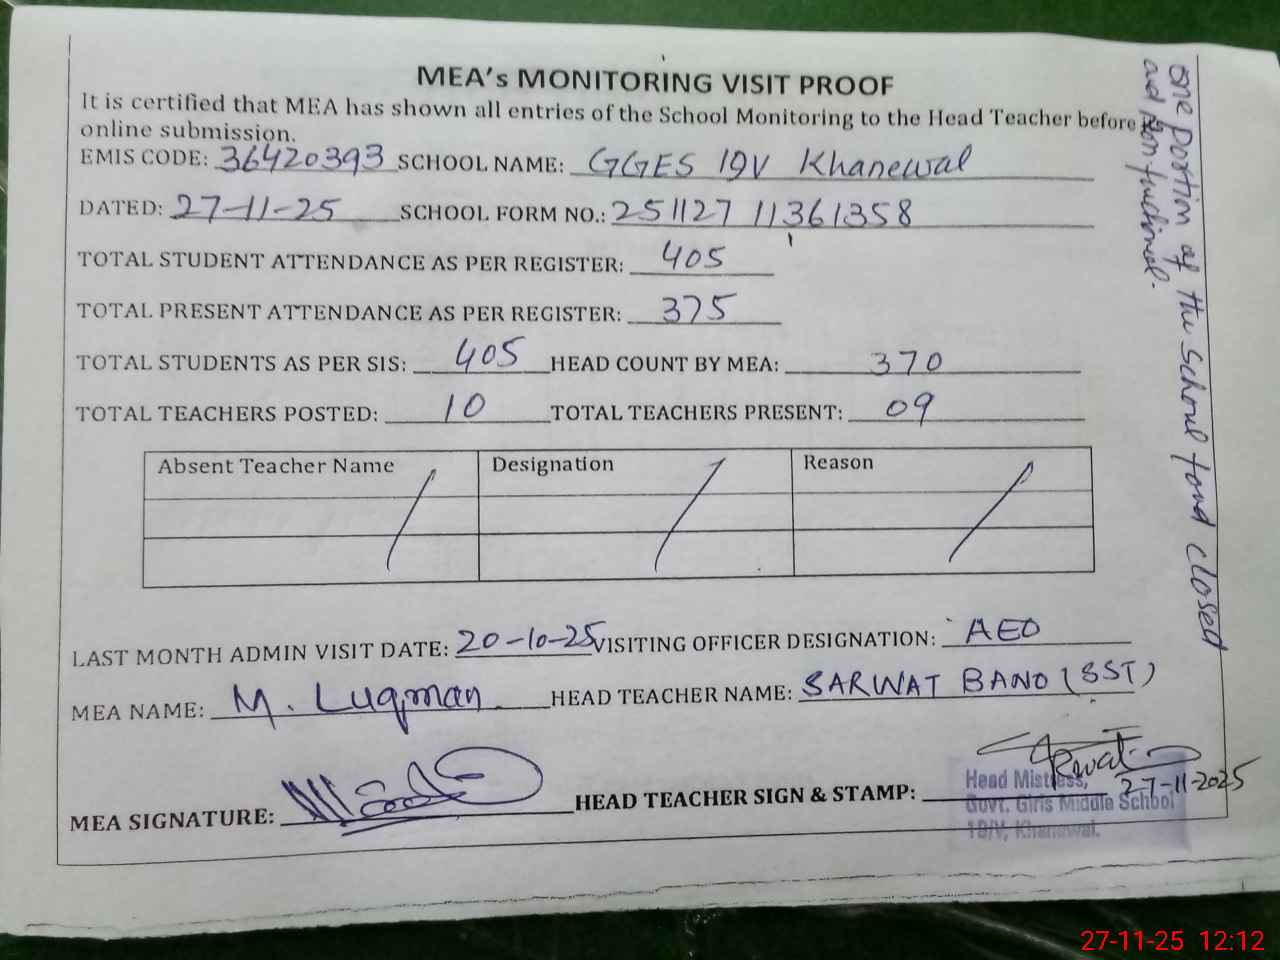 MEA's MONITORING VISIT PROOF
It is certified that MEA has shown all entries of the School Monitoring to the Head Teacher before
online submission.
EMIS CODE: 36420393 SCHOOL NAME: GGES 19V Khanewal
DATED: 27-11-25 SCHOOL FORM NO.: 251127 11361358
TOTAL STUDENT ATTENDANCE AS PER REGISTER: 405
TOTAL PRESENT ATTENDANCE AS PER REGISTER: 375
TOTAL STUDENTS AS PER SIS: 405 HEAD COUNT BY MEA: 370
TOTAL TEACHERS POSTED: 10 TOTAL TEACHERS PRESENT: 09
Absent Teacher Name Designation Reason
LAST MONTH ADMIN VISIT DATE: 20-10-25 VISITING OFFICER DESIGNATION: AEO
MEA NAME: M. Luqman HEAD TEACHER NAME: SARWAT BANO (SST)
MEA SIGNATURE: HEAD TEACHER SIGN & STAMP:
27-11-2025
Head Mistress,
Govt. Girls Middle School
19/V, Khanewal.
one portion of the School found closed
and Non functional.
27-11-25 12:12